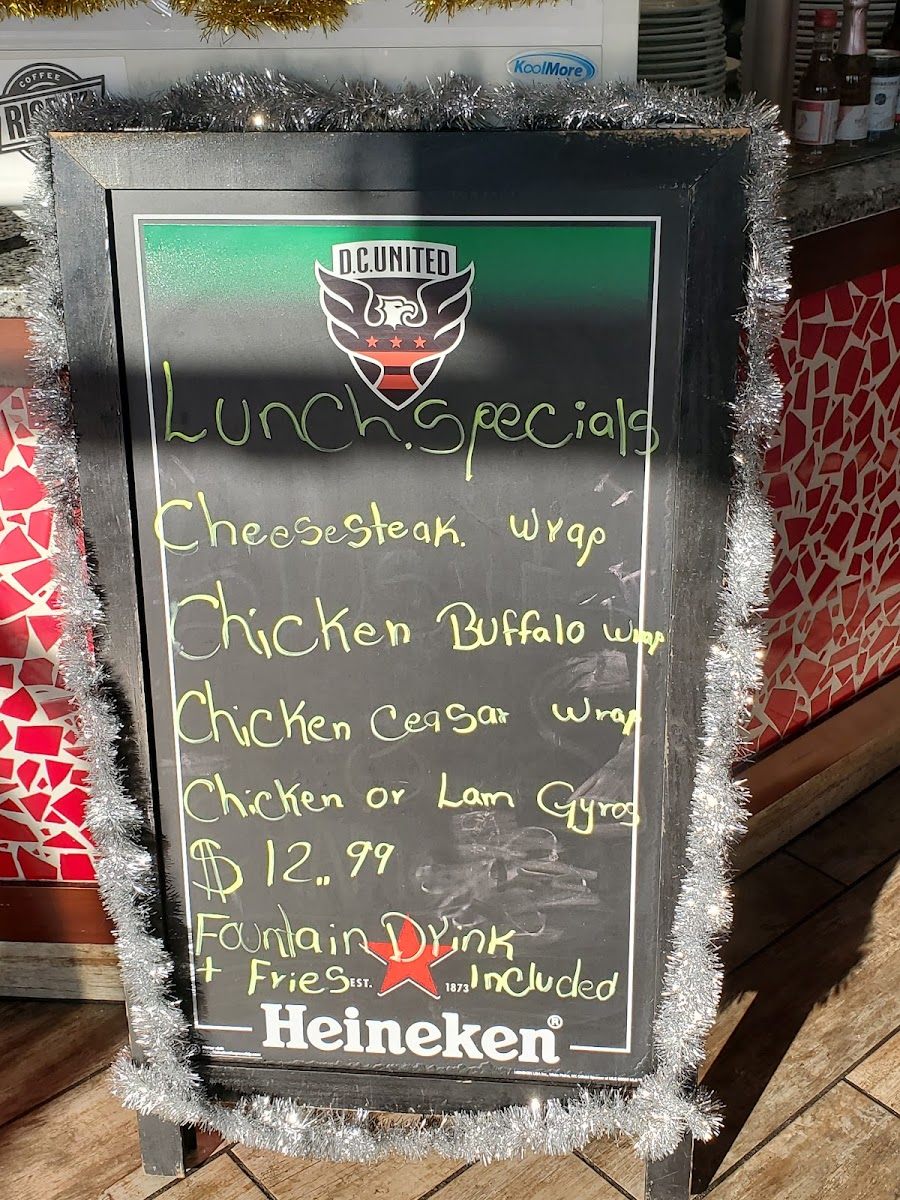 KoolMore
COFFEE
D.C.UNITED
Lunch.specials
Cheesesteak. wrap
Chicken Buffalo wrap
Chicken Ceasar wrap
Chicken or Lam Gyros
$ 12.,99
Fountain Drink
+ Fries Included
EST. 1873
Heineken®